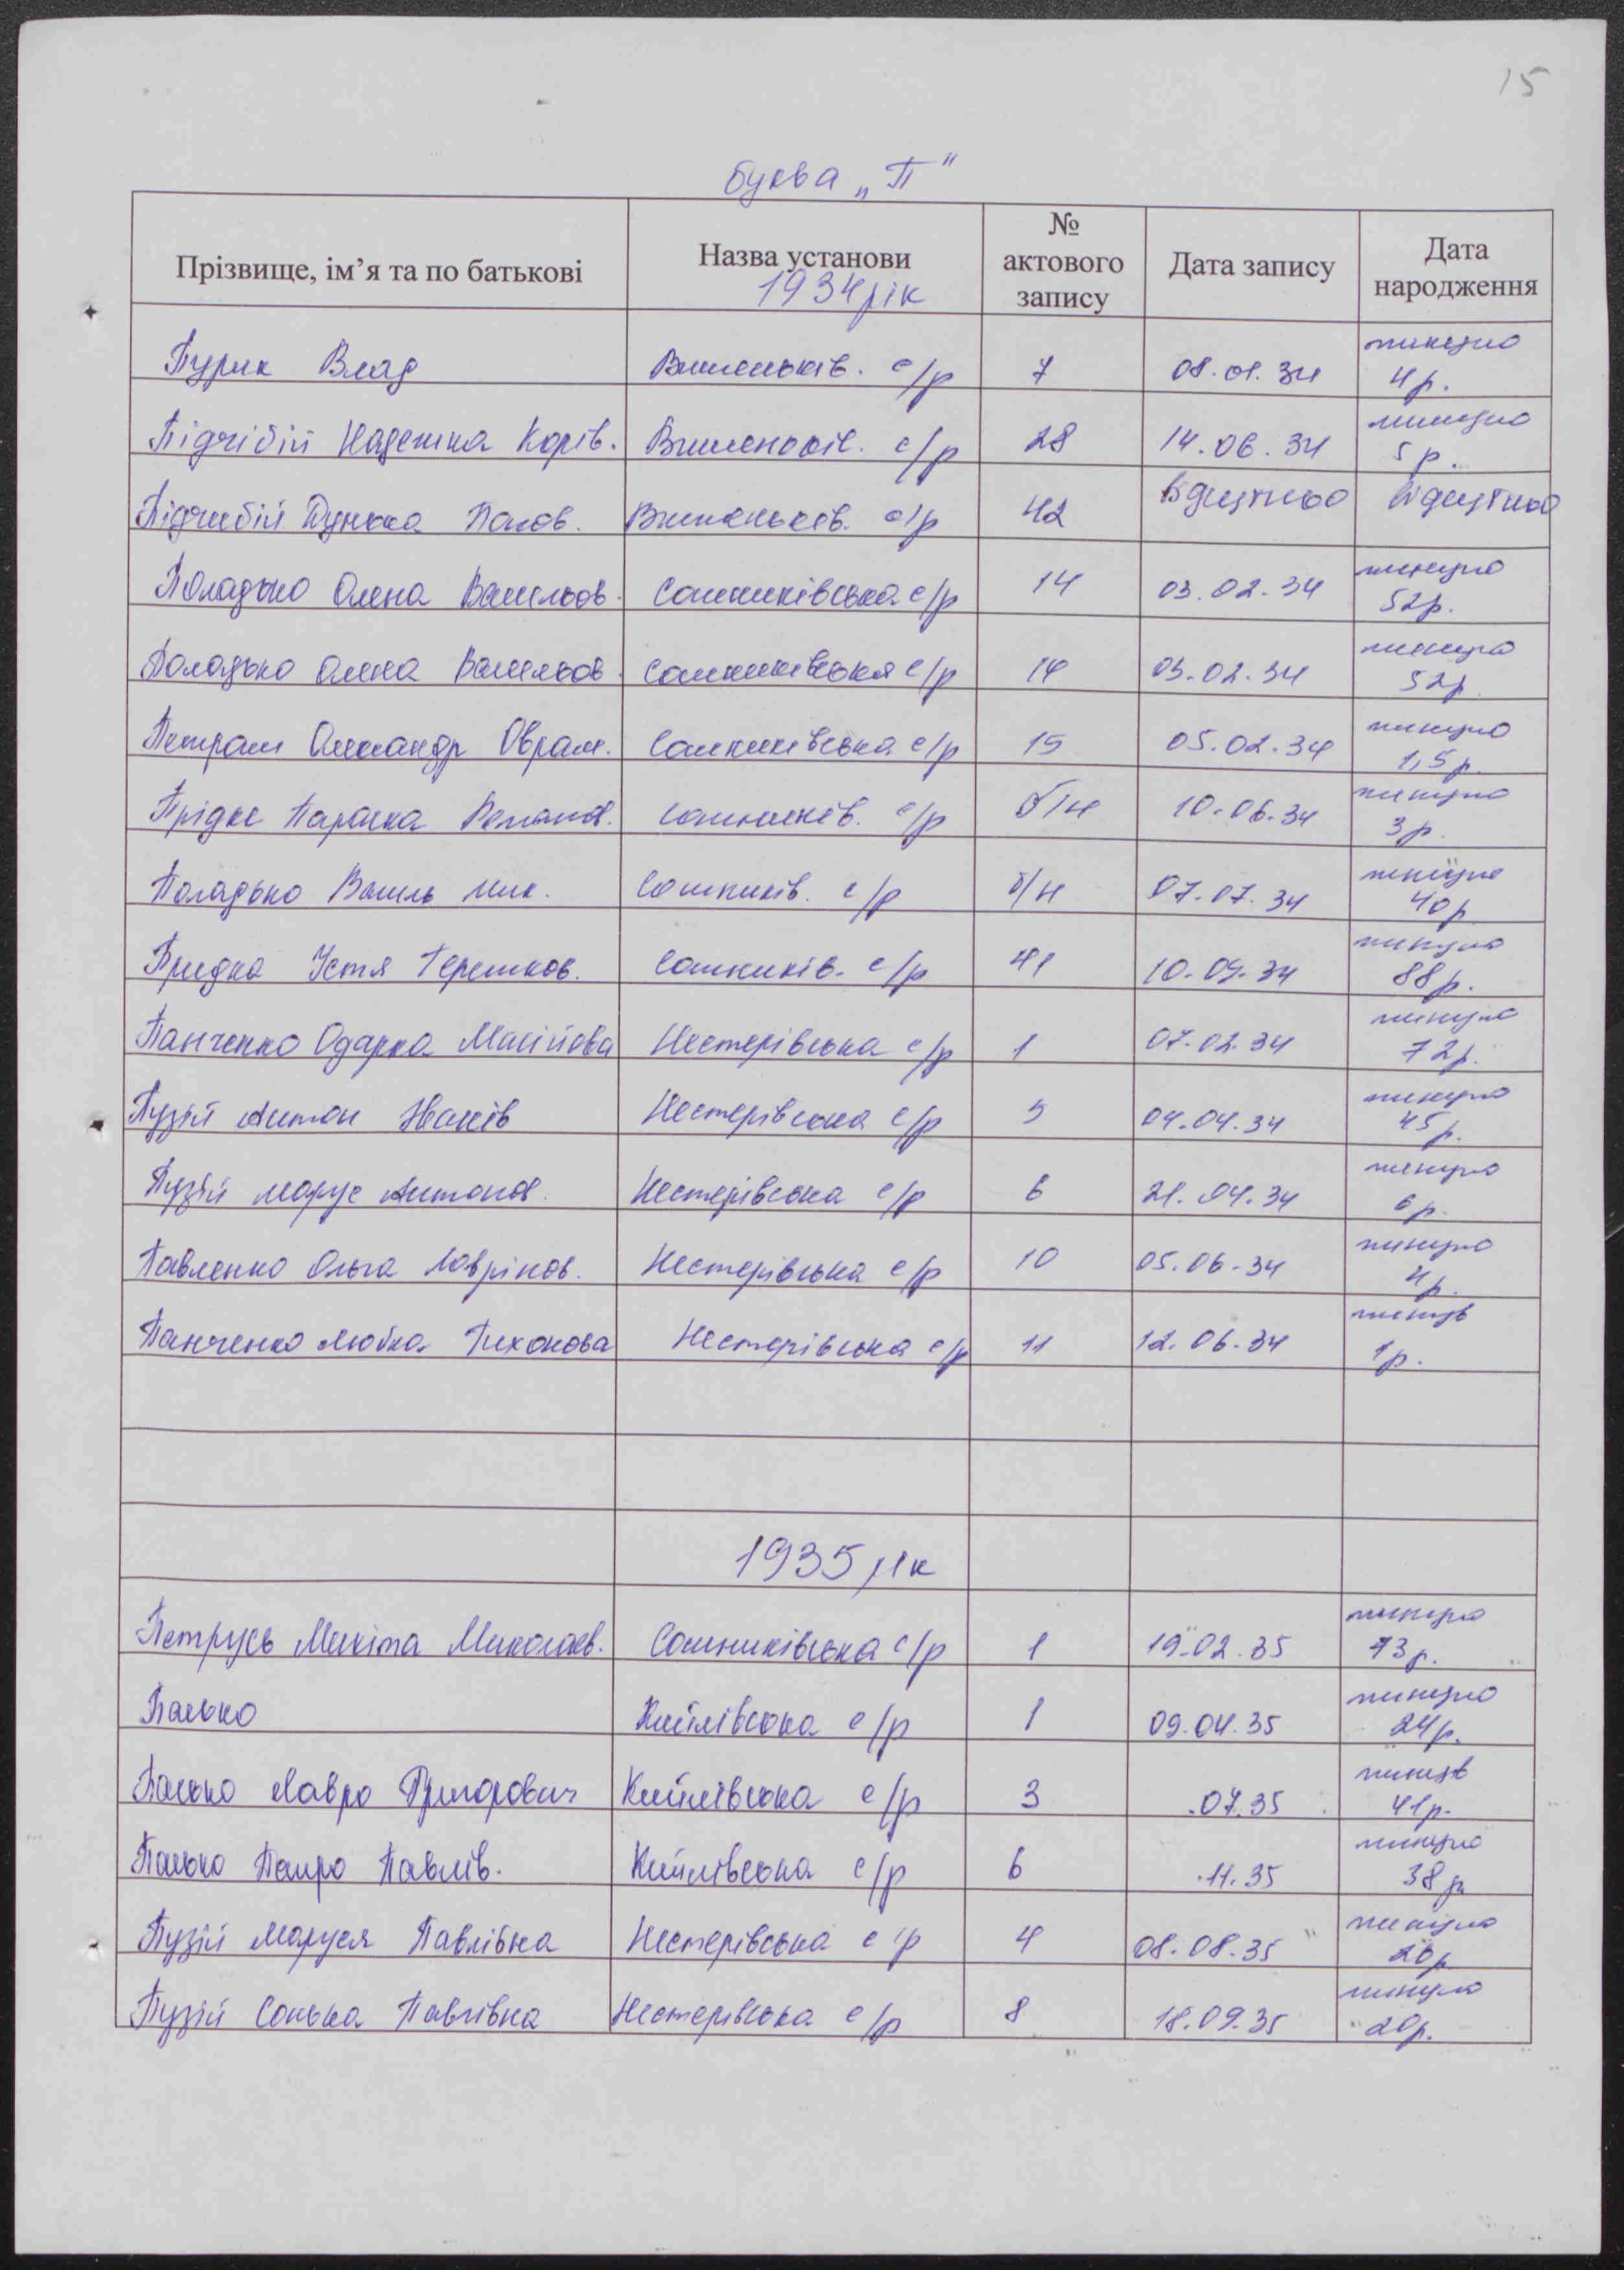 15
буква „П"
Прізвище, ім'я та по батькові Назва установи № актового запису Дата запису Дата народження
1934 рік
Пурик Влад Вишеньків. с/р 7 08.01.34 минуло 4 р.
Підчібій Надежка Корів. Вишеньків. с/р 28 14.06.34 минуло 5 р.
Підчибій Дунька Вишеньків. с/р 42 відсутньо відсутньо
Поладько Олена Васильов. Сошниківська с/р 14 03.02.34 минуло 52 р.
Поладько Олена Васильов. Сошниківська с/р 14 03.02.34 минуло 52 р.
Петраш Олександр Оврам. Сошниківська с/р 15 05.02.34 минуло 1,5 р.
Прідке Параска Роман. Сошників. с/р б/н 10.06.34 минуло 3 р.
Поладько Василь Мик. Сошників. с/р б/н 07.07.34 минуло 40 р.
Придка Устя Терешков. Сошників. с/р 41 10.09.34 минуло 88 р.
Панченко Одарка Масійова Нестерівська с/р 1 07.02.34 минуло 72 р.
Пузій Антон Іванів Нестерівська с/р 5 04.04.34 минуло 45 р.
Пузій Марус Антонов. Нестерівська с/р 6 21.04.34 минуло 6 р.
Павленко Ольга Лаврінов. Нестерівська с/р 10 05.06.34 минуло 4 р.
Панченко Любка Тихонова Нестерівська с/р 11 12.06.34 1 р.
1935 рік
Петрусь Микита Миколаєв. Сошниківська с/р 1 19.02.35 минуло 73 р.
Пасько Кийлівська с/р 1 09.04.35 минуло 24 р.
Пасько Лавро Григорович Кийлівська с/р 3 .07.35 41 р.
Пасько Павлів. Кийлівська с/р 6 .11.35 минуло 38 р.
Пузій Маруся Павлівна Нестерівська с/р 4 08.08.35 минуло 20 р.
Пузій Сонька Павлівна Нестерівська с/р 8 18.09.35 минуло 20 р.